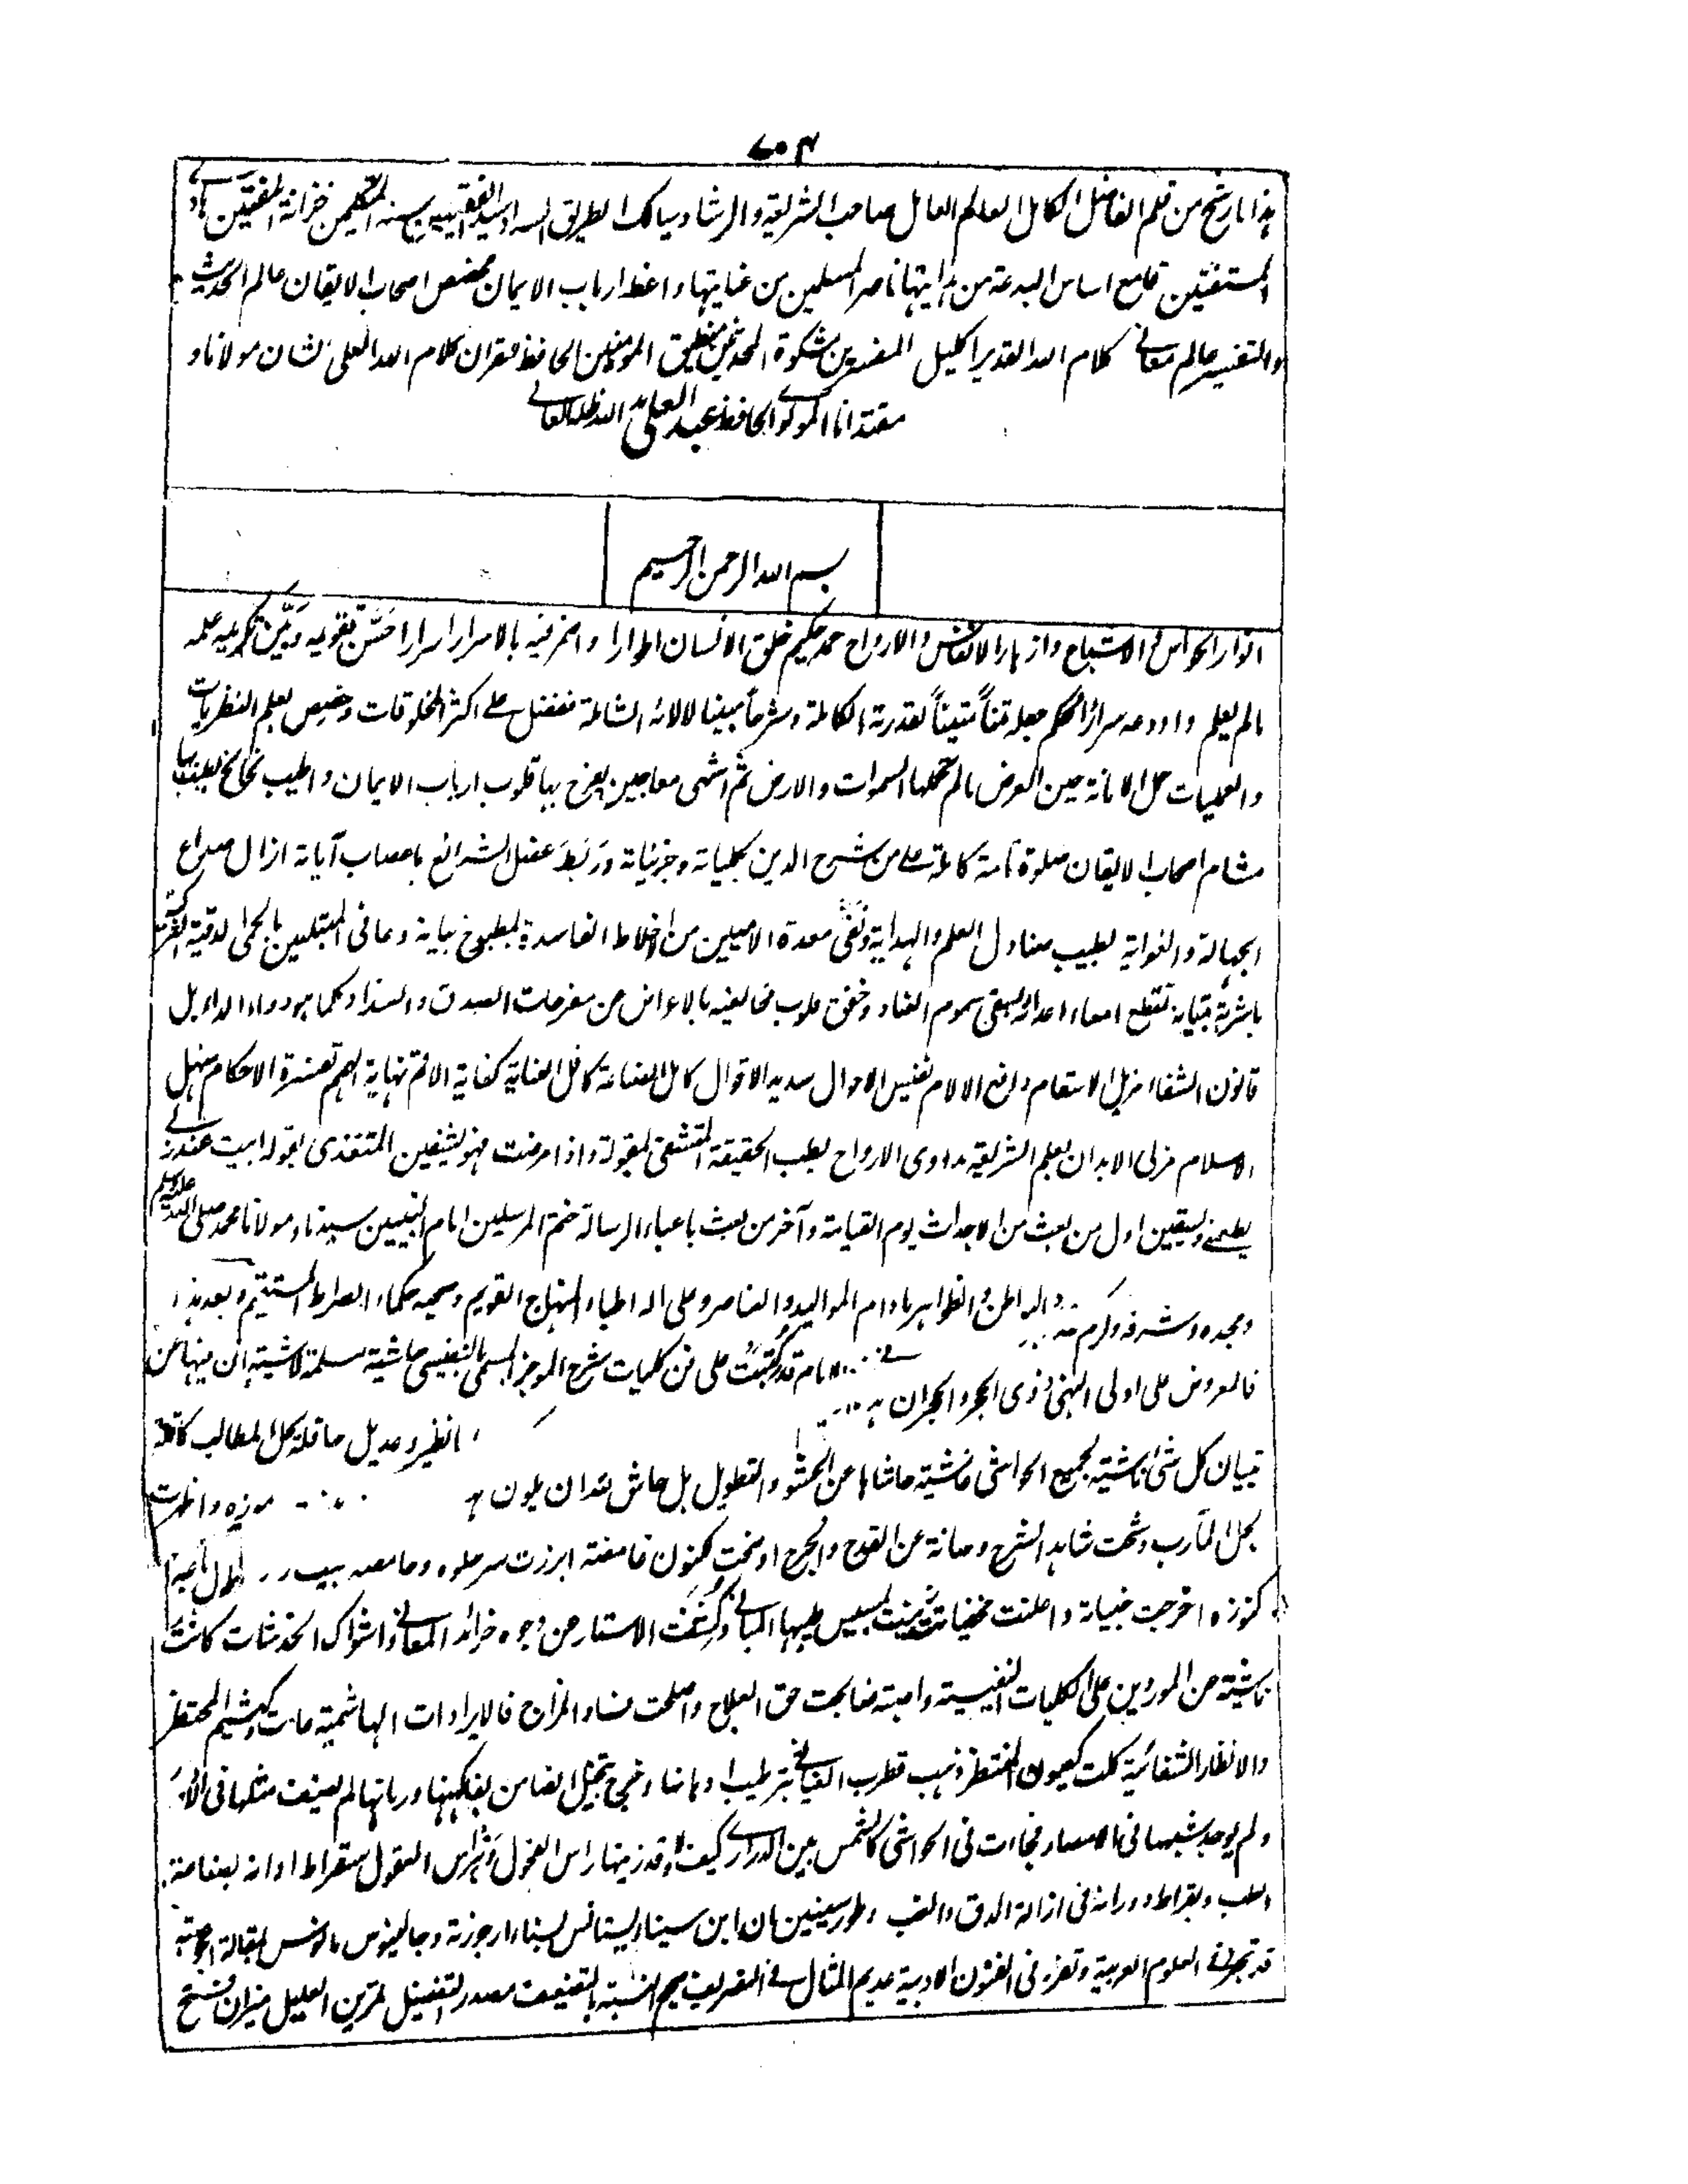 ٧٠٣
هذا ما رشح من قلم الفاضل الكامل العالم العامل صاحب الشريعة والرشاد سالك الطريق السداد سيد الفقهاء سند المتكلمين خزانة المفتيين
المستفتين قامع اساس البدعة من بدايتها ناصر المسلمين من غايتها واعظ ارباب الايمان مخصص اصحاب الايقان عالم الحديث
والتفسير عالم معاني كلام الله القدير اكليل المفسرين مشكوة المحدثين منطيق المؤمنين الحافظ لقران كلام الله العلى نشان مولانا و
مقتدانا المولوي الحافظ عبد العلي مد الله ظله العالي
بسم الله الرحمن الرحيم
انوار الحواس في الاستباع وازهار الانفس والارواح حمد حكيم خلق الانسان اطوارا واضمر فيه بالاسرار اسرارا حسّن تقويمه وبيّن تكريمه علمه
ما لم يعلم واودعه سرائر الحكم جعله متناً متيناً لقدرته الكاملة وشرحاً مبينا لالائه الشاملة ففضل على اكثر المخلوقات وخصص بعلم النظريات
والعمليات حمل الامانة حين العرض ما لم تحملها السموات والارض ثم اشهى معاجين يفرح بها قلوب ارباب الايمان واطيب لخالخ يطيب بها
مشام اصحاب الايقان صلوة تامة كاملة على من شرح الدين بكلياته وجزئياته وربط عضل الشرائع باعصاب آياته ازال صداع
الجهالة والغواية لطبيب صناديل العلم والهداية ونقى معدة الاميين من اخلاط الفاسدة بمطبوخ بيانه وعافى المبتلين بالحمى الدقية
باشربة تبيانه تقطع امعاء اعدائه بسقى سموم العناد وخفق قلوب مخالفيه بالاعراض عن مفرحات الصدق والسداد وكما هو دواء الداء بل
قانون الشفاء مزيل الاسقام دافع الالام نفيس الاحوال سديد الاقوال كامل الصناعة كافل العناية كفاية الامة نهاية الهمم تقدمة الاحكام منهل
الاسلام مزكى الابدان بعلم الشريعة مداوى الارواح بطب الحقيقة المتشفى بقوله واذا مرضت فهو يشفين المتغذى بقوله ابيت عند ربي
يطعمني ويسقين اول من بعث من الاجداث يوم القيامة وآخر من بعث باعباء الرسالة ختم المرسلين امام النبيين سيدنا ومولانا محمد صلى الله عليه وسلم
ومجده وشرفه وكرم البواطن والظواهر مادام المواليد والعناصر وعلى اله اطباء المنهاج القويم وصحبه حكماء الصراط المستقيم وبعد هذا
فالمعروض على اولى النهى ذوى الحجر والحجران قد كتبت على فن كليات شرح الموجز المسمى بالنفيسى حاشية سلمة لاشية ان فيها من
تبيان كل شئ ناشية لجميع الحواشى فاشية حاشاها عن الحشو والتطويل بل حاش لله ان يكون انظير وعديل حاقلة بكل المطالب كافلة
بجل المآرب وشحت شاهد الشرح وصانة عن القدح والجرح اوضحت مكنون غامضة ابرزت
كنوزه اخرجت خبياته واعلنت مخفياته المباني وكشفت الاستار عن وجوه خرائد المعاني واشواك الخدشات كانت
ناشية من الموردين على الكليات النفيسية واصبة فعالجت حق العلاج واصلحت فساد المزاج فالايرادات الهاشمية ماست كهشيم المحتظر
والانظار الشفائية كلت كعيون المنتظر ذهب قطرب الفيافي بترطيب ادهانها وخرج بتخيل لم يصنف مثلها فى
ولم يوجد شبهها فى الامصار فجاءت فى الحواشى كالشمس بين الدراري كيف لا وقد زينها راس الفحول ونبراس العقول سقراط اوانه بصناعة
الطب وبقراط دورانه فى ازالة الدق والتعب وطور سينين ابن سينا يستانس بسناء ارجوزته وجالينوس مانوس بمقالة
قد تبحر في العلوم العربية وتفرد فى الفنون الادبية عديم المثال في التصريف صحيح النسبة بالتضعيف مصدر التفضيل تمرين العليل ميزان